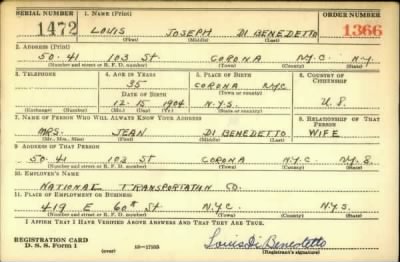 SERIAL NUMBER 1. NAME (Print) ORDER NUMBER
1472 LOUIS JOSEPH DI BENEDETTO 1366
(First) (Middle) (Last)
2. ADDRESS (Print)
50-41 103 St. CORONA N.Y.C. N.Y.
(Number and street or R. F. D. number) (Town) (County) (State)
3. TELEPHONE 4. AGE IN YEARS 5. PLACE OF BIRTH 6. COUNTRY OF CITIZENSHIP
35 CORONA NYC
DATE OF BIRTH (Town or county)
12-15 1904 N.Y.S. U.S.
(Exchange) (Number) (Mo.) (Day) (Yr.) (State or country)
7. NAME OF PERSON WHO WILL ALWAYS KNOW YOUR ADDRESS 8. RELATIONSHIP OF THAT PERSON
MRS. JEAN DI BENEDETTO WIFE
(Mr., Mrs., Miss) (First) (Middle) (Last)
9. ADDRESS OF THAT PERSON
50-41 103 St CORONA N.Y.C. N.Y.S.
(Number and street or R. F. D. number) (Town) (County) (State)
10. EMPLOYER'S NAME
NATIONAL TRANSPORTATION CO.
11. PLACE OF EMPLOYMENT OR BUSINESS
419 E 60th St N.Y.C. N.Y.S.
(Number and street or R. F. D. number) (Town) (County) (State)
I AFFIRM THAT I HAVE VERIFIED ABOVE ANSWERS AND THAT THEY ARE TRUE.
REGISTRATION CARD
D. S. S. Form 1 (over) 16—17105 Louis Di Benedetto
(Registrant's signature)